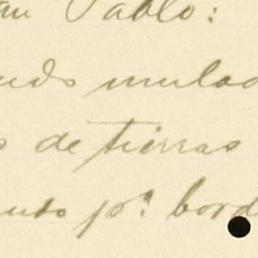 an Pablo:
uds mulad
s de tierras
uto p.ª bord